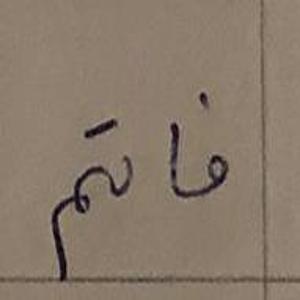 فاتم